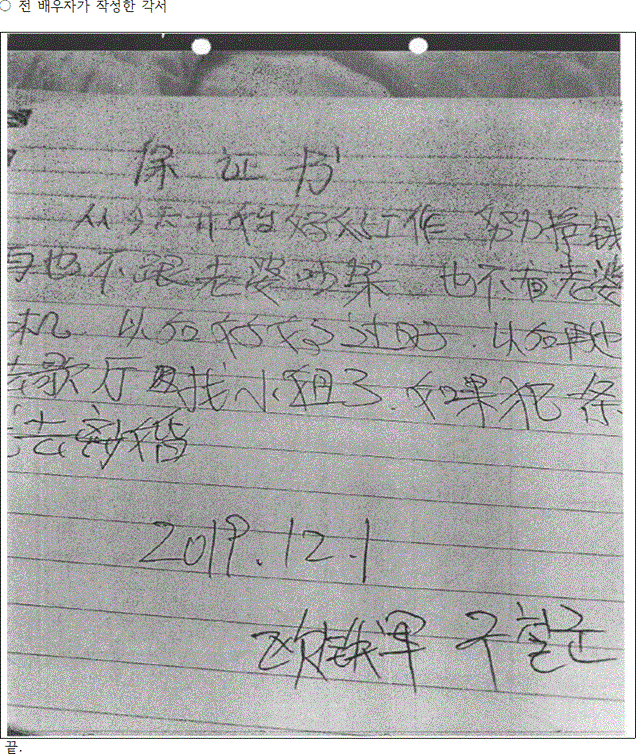 ○ 전 배우자가 작성한 각서
保证书
从今天开始好好工作.努力挣钱
再也不跟老婆吵架 也不查老婆
机 以后好好过日子.以后再也
去歌厅 找小姐了.如果犯 条
去离婚
2019.12.1
铁军 구철군
끝.